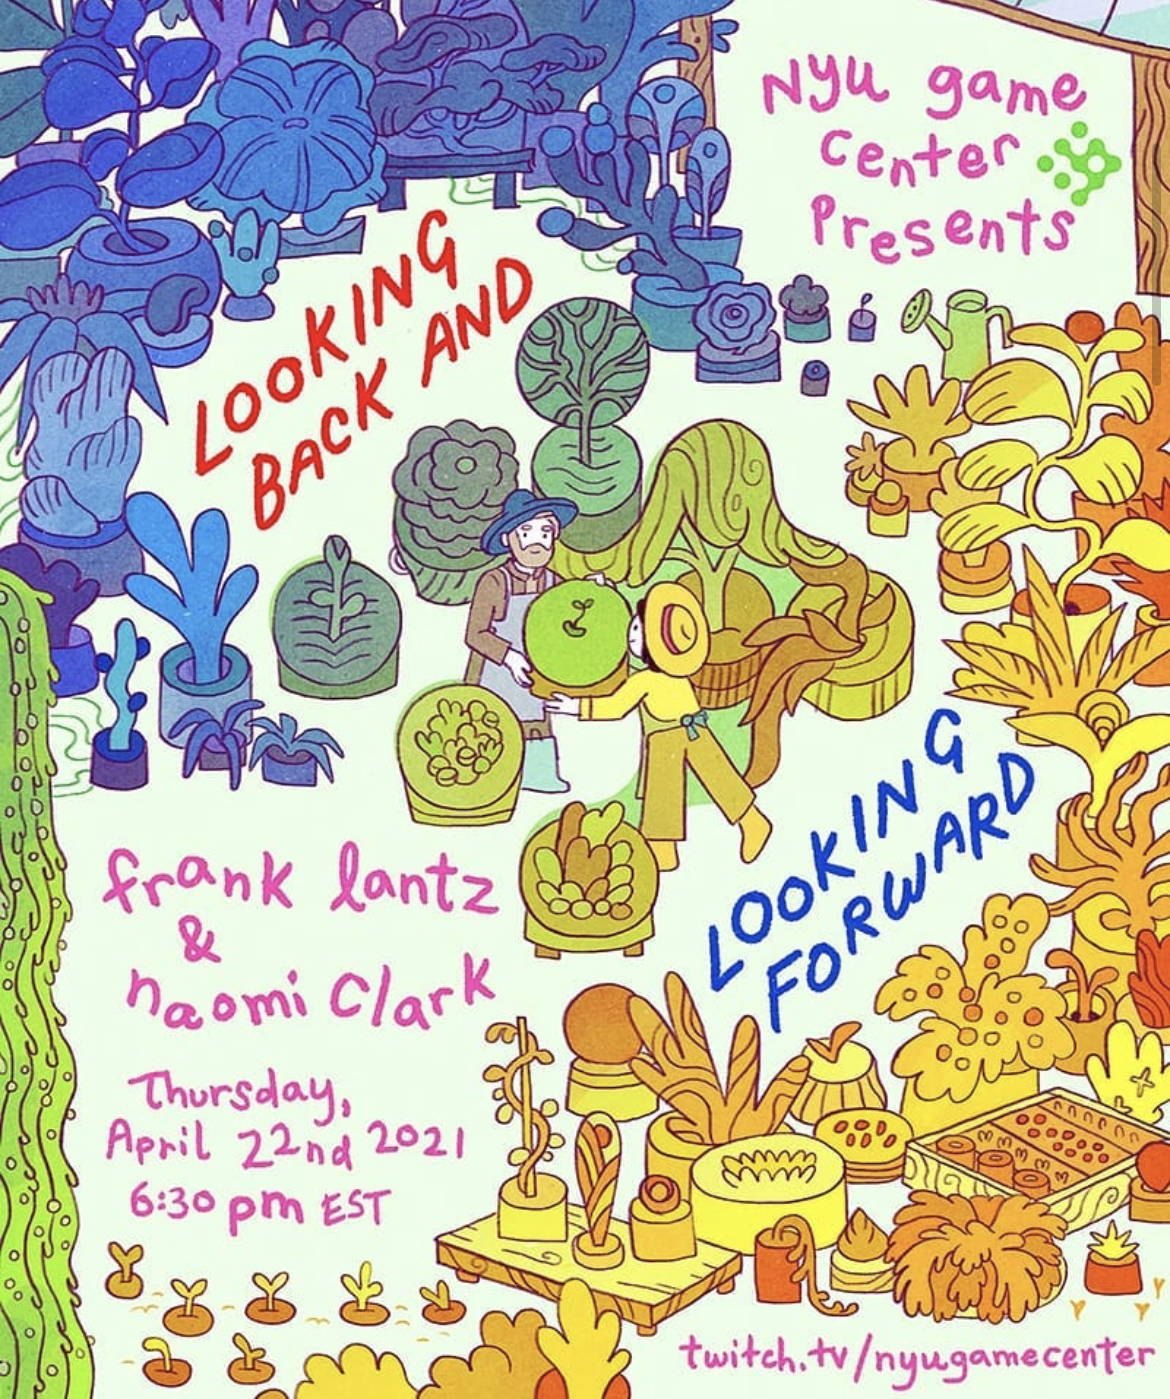 NYU game
Center
Presents
LOOKING
BACK AND
LOOKING
FORWARD
frank lantz
&
naomi Clark
Thursday,
April 22nd 2021
6:30 pm EST
twitch.tv/nyugamecenter